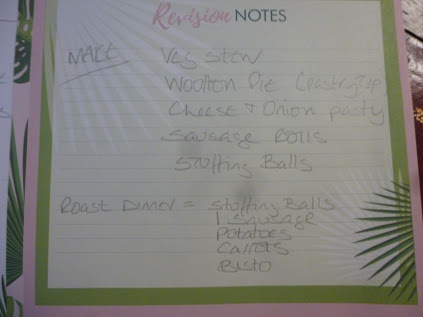 Revision NOTES
MAKE Veg stew
Woolton Pie (pastry top)
Cheese & Onion pasty
Sausage Rolls
Stuffing Balls
Roast Dinner = Stuffing Balls
1 sausage
Potatoes
Carrots
Bisto